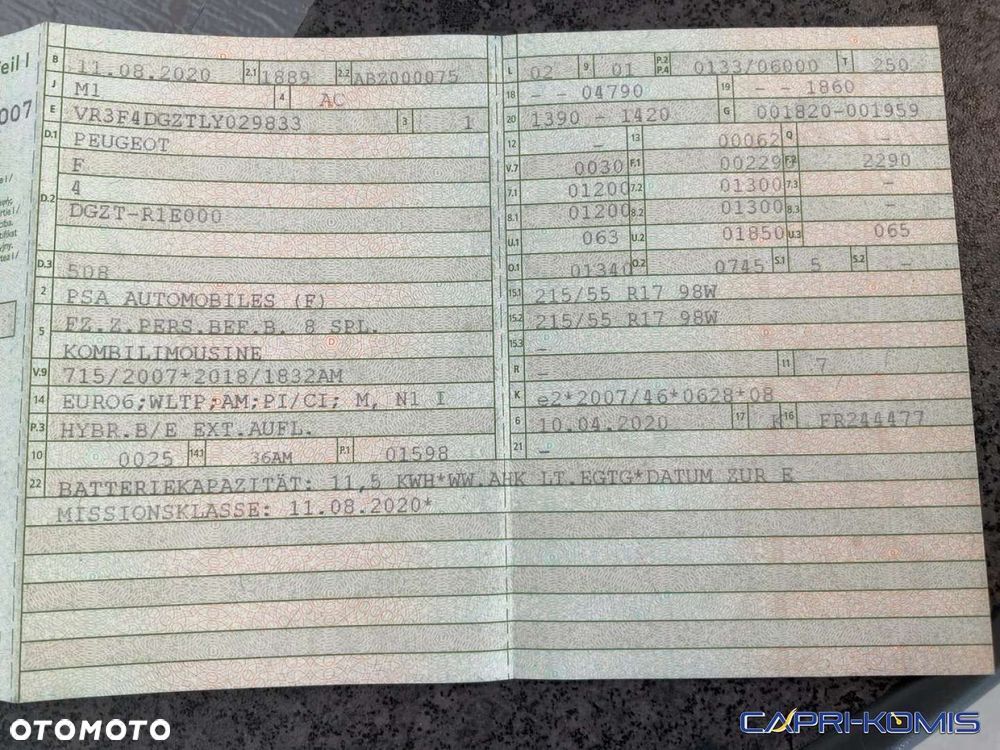 Teil I
B 11.08.2020 2.1 1889 2.2 ABZ000075
J M1 4 AC
007
E VR3F4DGZTLY029833 3 1
D.1 PEUGEOT
F
D.2 4
DGZT-R1E000
D.3 508
2 PSA AUTOMOBILES (F)
5 FZ.Z.PERS.BEF.B. 8 SPL.
KOMBILIMOUSINE
V.9 715/2007*2018/1832AM
14 EURO6;WLTP;AM;PI/CI; M, N1 I
P.3 HYBR.B/E EXT.AUFL.
10 0025 14.1 36AM P.1 01598
22 BATTERIEKAPAZITÄT: 11,5 KWH*WW.AHK LT.EGTG*DATUM ZUR E
MISSIONSKLASSE: 11.08.2020*
L 02 9 01 P.2 P.4 0133/06000 T 250
18 - - 04790 19 - - 1860
20 1390 - 1420 G 001820-001959
12 - 13 00062 Q -
V.7 0030 F.1 00229 F.2 2290
7.1 01200 7.2 01300 7.3 -
8.1 01200 8.2 01300 8.3 -
U.1 063 U.2 01850 U.3 065
O.1 01340 O.2 0745 S.1 5 S.2 -
15.1 215/55 R17 98W
15.2 215/55 R17 98W
15.3 -
R - 11 7
K e2*2007/46*0628*08
6 10.04.2020 17 K 16 FR244477
21 -
OTOMOTO
CAPRI-KOMIS